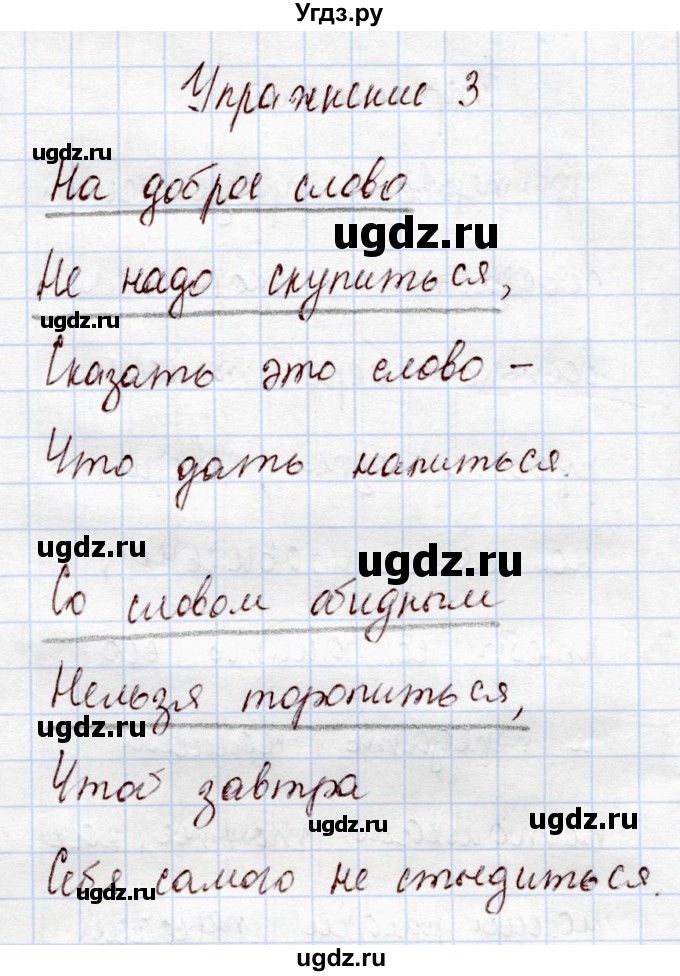 Угдз.ру
Упражнение 3
ugdz.ru
На доброе слово
ugdz.ru
Не надо скупиться,
ugdz.ru
Сказать это слово –
Что дать напиться.
ugdz.ru
ugdz.ru
Со словом обидным
Нельзя торопиться,
ugdz.ru
Чтоб завтра
ugdz.ru
Себя самого не стыдиться.
ugdz.ru
ugdz.ru